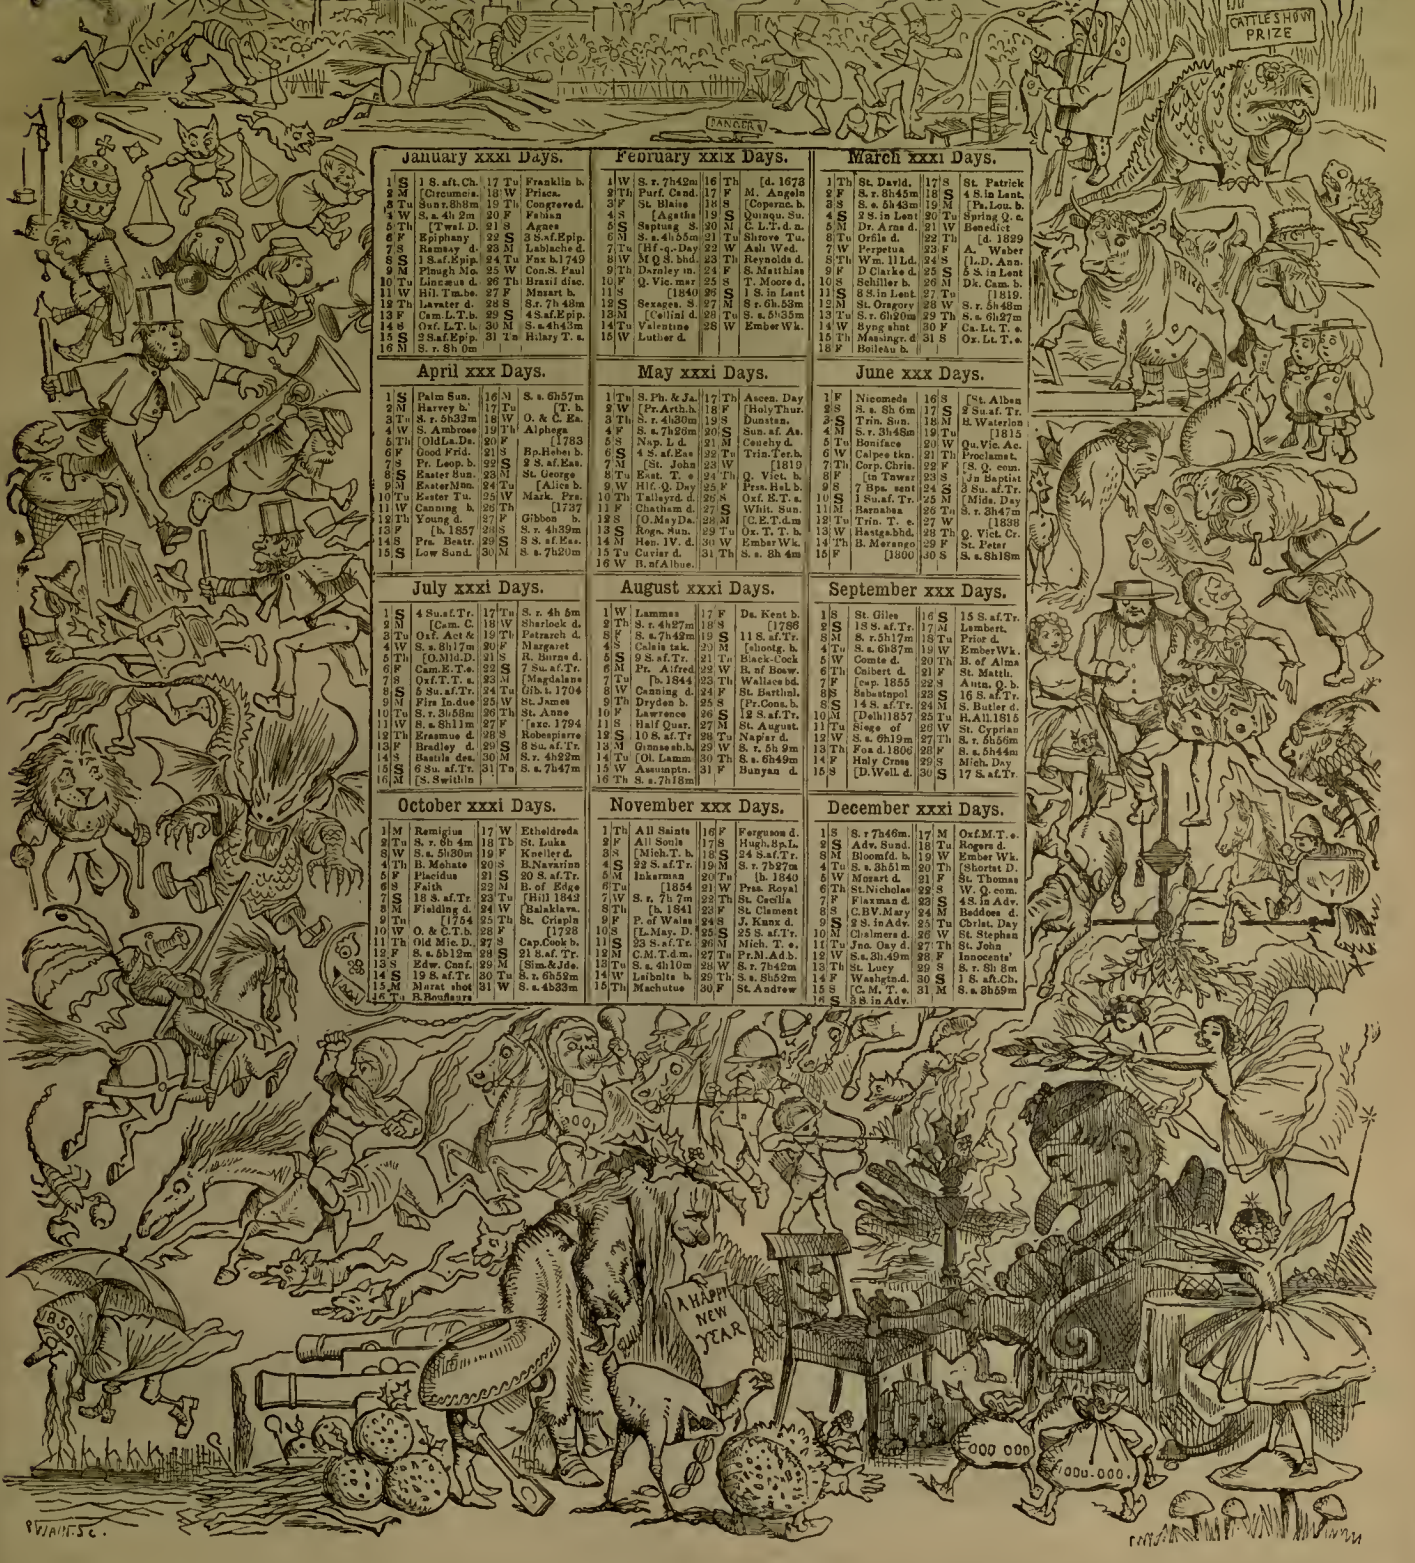 CATTLE SHOW
PRIZE
DANGER
January xxxi Days.
1 S 1 S. aft. Ch.
2 M [Circumcis.
3 Tu Sun r. 8h8m
4 W S. s. 4h 2m
5 Th [Twel. D.
6 F Epiphany
7 S Ramsay d.
8 S 1 S.af.Epip.
9 M Plough Mo.
10 Tu Linnæus d.
11 W Hil. Tm.be.
12 Th Lavater d.
13 F Cam.L.T.b.
14 S Oxf. L.T. b.
15 S 2 S.af.Epip.
16 M S. r. 8h 0m
17 Tu Franklin b.
18 W Prisca.
19 Th Congreve d.
20 F Fabian
21 S Agnes
22 S 3 S.af.Epip.
23 M Lablache d.
24 Tu Fox b.1749
25 W Con.S. Paul
26 Th Brazil disc.
27 F Mozart b.
28 S S.r. 7h 48m
29 S 4 S.af.Epip.
30 M S. s. 4h43m
31 Tu Hilary T. e.
February xxix Days.
1 W S. r. 7h42m
2 Th Purf. Cand.
3 F St. Blaise
4 S [Agatha
5 S Septuag S.
6 M S. s. 4h55m
7 Tu [Hf-q. Day
8 W M Q S. bhd.
9 Th Darnley m.
10 F Q. Vic. mar
11 S [1840
12 S Sexages. S.
13 M [Cellini d.
14 Tu Valentine
15 W Luther d.
16 Th [d. 1673
17 F M. Angelo
18 S [Copernc. b.
19 S Quinqu. Su.
20 M C. L. T. d. n.
21 Tu Shrove Tu.
22 W Ash Wed.
23 Th Reynolds d.
24 F S. Matthias
25 S T. Moore d.
26 S 1 S. in Lent
27 M S r. 6h.53m
28 Tu S. s. 5h35m
28 W Ember Wk.
March xxxi Days.
1 Th St. David.
2 F S. r. 8h45m
3 S S. s. 5h43m
4 S 2 S. in Lent
5 M Dr. Arne d.
6 Tu Orfila d.
7 W Perpetua
8 Th Wm. II Ld.
9 F D Clarke d.
10 S Schiller b.
11 S 8 S.in Lent.
12 M St. Gregory
13 Tu S. r. 6h20m
14 W Byng shot
15 Th Massingr. d
18 F Boileau b.
17 S St. Patrick
18 S 4 S. in Lent.
19 M [Ps. Lou. b.
20 Tu Spring Q. c.
21 W Benedict
22 Th [d. 1829
23 F A. Weber
24 S [L.D. Ann.
25 S 5 S. in Lent
26 M Dk. Cam. b.
27 Tu [1819.
28 W S. r. 5h48m
29 Th S. s. 6h27m
30 F Ca. Lt. T. e.
31 S Ox. Lt. T. e.
PRIZE
April xxx Days.
1 S Palm Sun.
2 M Harvey b.
3 Tu S. r. 5h32m
4 W S. Ambrose
5 Th [OldLa.Da.
6 F Good Frid.
7 S Pr. Leop. b.
8 S Easter Sun.
9 M EasterMon.
10 Tu Easter Tu.
11 W Canning b.
12 Th Young d.
13 F [b. 1857
14 S Prs. Beatr.
15 S Low Sund.
16 M S. s. 6h57m
17 Tu [T. b.
18 W O. & C. Ea.
19 Th Alphege
20 F [1783
21 S Bp.Heber b.
22 S 2 S. af.Eas.
23 M St. George
24 Tu [Alice b.
25 W Mark. Prs.
26 Th [1737
27 F Gibbon b.
28 S S. r. 4h39m
29 S 3 S. af.Eas.
30 M S. s. 7h20m
May xxxi Days.
1 Tu S. Ph. & Ja.
2 W [Pr.Arth.b.
3 Th S. r. 4h30m
4 F S. s. 7h26m
5 S Nap. I. d
6 S 4 S. af.Eas
7 M [St. John
8 Tu East. T. e
9 W Hlf. Q. Day
10 Th Talleyrd. d
11 F Chatham d
12 S [O.MayDa.
13 S Roga. Sun.
14 M Hen. IV. d.
15 Tu Cuvier d.
16 W B. of Albue.
17 Th Ascen. Day
18 F [HolyThur.
19 S Dunstan.
20 S Sun. af. As.
21 M Cauchy d.
22 Tu Trin.Ter.b.
23 W [1819
24 Th Q. Vict. b.
25 F Prss. Hel. b.
26 S Oxf. E. T. e.
27 S Whit. Sun.
28 M [C.E.T.d.m
29 Tu Ox. T. T. b.
30 W Ember Wk.
31 Th S. s. 8h 4m
June xxx Days.
1 F Nicomede
2 S S. s. 8h 6m
3 S Trin. Sun.
4 M S. r. 3h48m
5 Tu Boniface
6 W Calpee tkn.
7 Th Corp. Chris.
8 F [in Tower
9 S 7 Bps. sent
10 S 1 Su.af. Tr.
11 M Barnabas
12 Tu Trin. T. e.
13 W Hastgs.bhd.
14 Th B. Marengo
15 F [1800
16 S [St. Alban
17 S 2 Su. af. Tr.
18 M B. Waterloo
19 Tu [1815
20 W Qu. Vic. Ac.
21 Th Proclamat.
22 F [S. Q. com.
23 S Jn Baptist
24 S 3 Su. af.Tr.
25 M [Mids. Day
26 Tu S. r. 3h47m
27 W [1838
28 Th Q. Vict. Cr.
29 F St. Peter
30 S S. s. 8h18m
July xxxi Days.
1 S 4 Su.af.Tr.
2 M [Cam. C.
3 Tu Oxf. Act &
4 W S. s. 8h17m
5 Th [O.Mid.D.
6 F Cam.E.T.e.
7 S Oxf.T.T. e.
8 S 5 Su. af.Tr.
9 M Fire In.due
10 Tu S. r. 3h58m
11 W S. s. 8h11m
12 Th Erasmus d.
13 F Bradley d.
14 S Bastile des.
15 S 6 Su. af.Tr.
16 M [S. Swithin
17 Tu S. r. 4h 5m
18 W Sherlock d.
19 Th Petrarch d.
20 F Margaret
21 S R. Burns d.
22 S 7 Su. af.Tr.
23 M [Magdalene
24 Tu Gib. t. 1704
25 W St. James
26 Th St. Anne
27 F [exc. 1794
28 S Robespierre
29 S 8 Su. af. Tr.
30 M S. r. 4h22m
31 Tu S. s. 7h47m
August xxxi Days.
1 W Lammas
2 Th S. r. 4h27m
3 F S. s. 7h42m
4 S Calais tak.
5 S 9 S. af.Tr.
6 M Pr. Alfred
7 Tu [b. 1844
8 W Canning d.
9 Th Dryden b.
10 F Lawrence
11 S Half Quar.
12 S 10 S. af Tr
13 M Grouse sh.b.
14 Tu [Ol. Lamm.
15 W Assumptn.
16 Th S. s. 7h18m
17 F Ds. Kent b.
18 S [1786
19 S 11 S. af.Tr.
20 M [shootg. b.
21 Tu Black-Cock
22 W B. of Bosw.
23 Th Wallace bd.
24 F St. Barthol.
25 S [Pr.Cons. b.
26 S 12 S. af.Tr.
27 M St. August.
28 Tu Napier d.
29 W S. r. 5h 9m
30 Th S. s. 6h49m
31 F Bunyan d.
September xxx Days.
1 S St. Giles
2 S 13 S. af. Tr.
3 M S. r. 5h17m
4 Tu S. s. 6h37m
5 W Comte d.
6 Th Colbert d.
7 F [cap. 1855
8 S Sebastopol
9 S 14 S. af.Tr.
10 M [Delhi1857
11 Tu Siege of
12 W S. s. 6h19m
13 Th Fox d.1806
14 F Holy Cross
15 S [D.Well. d.
16 S 15 S. af.Tr.
17 M Lambert.
18 Tu Prior d.
19 W EmberWk.
20 Th B. of Alma
21 F St. Matth.
22 S Autn. Q. b.
23 S 16 S. af.Tr.
24 M S. Butler d.
25 Tu H.All.1815
26 W St. Cyprian
27 Th S. r. 5h56m
28 F S. s. 5h44m
29 S Mich. Day
30 S 17 S. af.Tr.
October xxxi Days.
1 M Remigius
2 Tu S. r. 6h 4m
3 W S. s. 5h30m
4 Th B. Mohatz
5 F Placidus
6 S Faith
7 S 18 S. af.Tr.
8 M Fielding d.
9 Tu [1754
10 W O. & C.T.b.
11 Th Old Mic. D.
12 F S. s. 5h12m
13 S Edw. Conf.
14 S 19 S. af.Tr.
15 M Murat shot
16 Tu B.Boufleurs
17 W Etheldreda
18 Th St. Luke
19 F Kneller d.
20 S B.Navarino
21 S 20 S. af.Tr.
22 M B. of Edge
23 Tu [Hill 1642
24 W [Balaklava.
25 Th St. Crispin
26 F [1728
27 S Cap.Cook b.
28 S 21 S.af. Tr.
29 M [Sim.&Jde.
30 Tu S. r. 6h52m
31 W S. s. 4h33m
November xxx Days.
1 Th All Saints
2 F All Souls
3 S [Mich.T. b.
4 S 22 S. af.Tr.
5 M Inkerman
6 Tu [1854
7 W S. r. 7h 7m
8 Th [b. 1841
9 F P. of Wales
10 S [L.May. D.
11 S 23 S.af.Tr.
12 M C.M.T.d.m.
13 Tu S. s. 4h10m
14 W Leibnitz b.
15 Th Machutus
16 F Ferguson d.
17 S Hugh.Bp.L.
18 S 24 S.af.Tr.
19 M S. r. 7h27m
20 Tu [b. 1840
21 W Prss. Royal
22 Th St. Cecilia
23 F St. Clement
24 S J. Knox d.
25 S 25 S. af.Tr.
26 M Mich. T. e.
27 Tu Pr.M.Ad.b.
28 W S. r. 7h42m
29 Th S. s. 3h52m
30 F St. Andrew
December xxxi Days.
1 S S. r 7h46m.
2 S Adv. Sund.
3 M Bloomfd. b.
4 Tu S. s. 3h51m
5 W Mozart d.
6 Th St.Nicholas
7 F Flaxman d.
8 S C.BV.Mary
9 S 2 S. in Adv.
10 M Chalmers d.
11 Tu Jno. Gay d.
12 W S. s. 3h.49m
13 Th St. Lucy
14 F Washgtn.d.
15 S [C. M. T. e.
16 S 3 S. in Adv.
17 M Oxf.M.T. e.
18 Tu Rogers d.
19 W Ember Wk.
20 Th [Shortst D.
21 F St. Thomas
22 S W. Q. com.
23 S 4 S. in Adv.
24 M Beddoes d.
25 Tu Christ. Day
26 W St. Stephen
27 Th St. John
28 F Innocents'
29 S S. r. 8h 8m
30 S 1 S. aft.Ch.
31 M S. s. 3h59m
1859
A HAPPY
NEW
YEAR
000 000
1000.000.
SWAIN. SC.